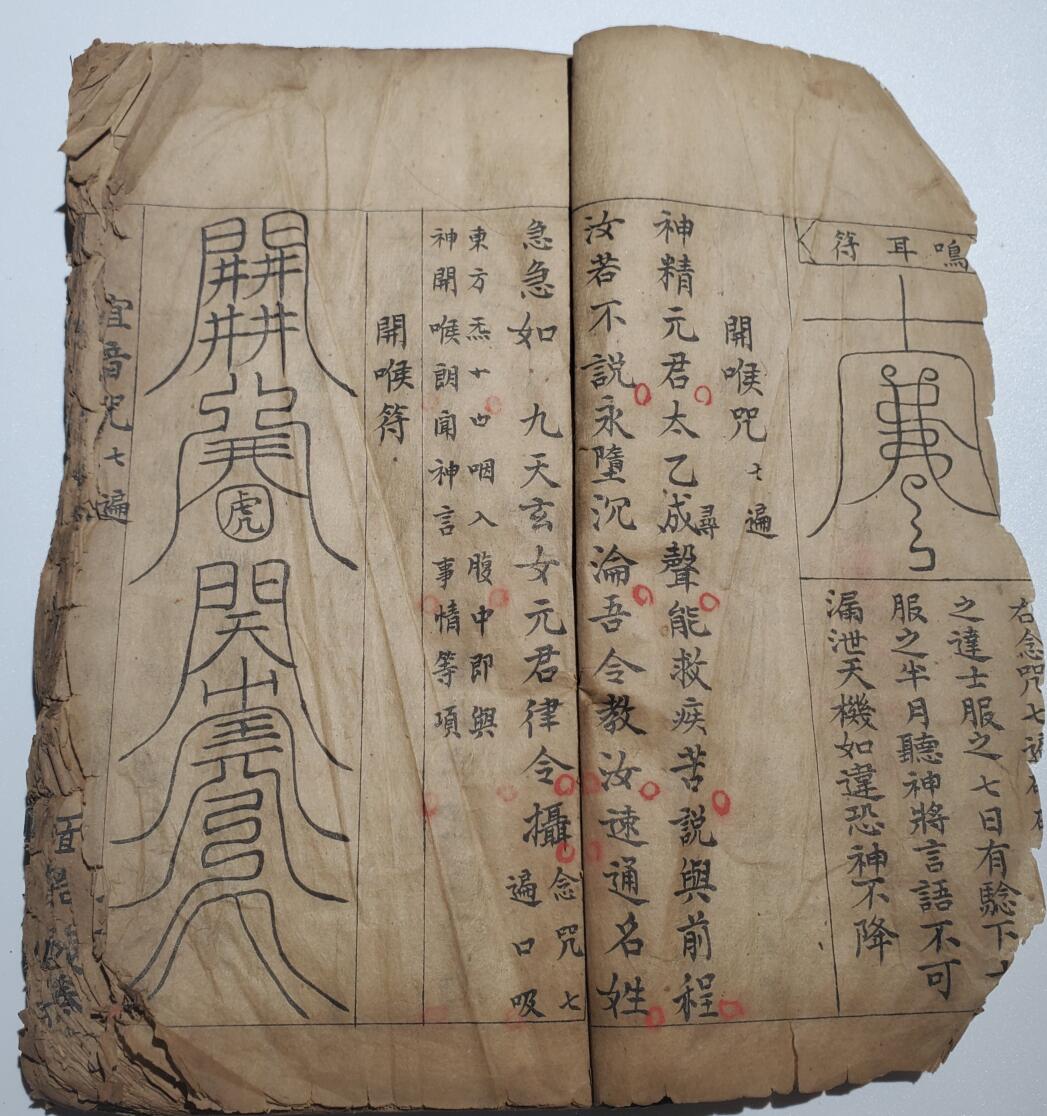 鳴耳符
右念咒七遍
之達士服之七日有驗下士
服之半月聽神將言語不可
漏泄天機如違恐神不降
開喉咒七遍
神精元君太乙成聲尋能救疾苦說與前程
汝若不說永墮沉淪吾令教汝速通名姓
急急如九天玄女元君律令攝念咒七遍口吸
東方炁十口咽入腹中即與
神開喉朗聞神言事情等項
開喉符
虎
宣音咒七遍